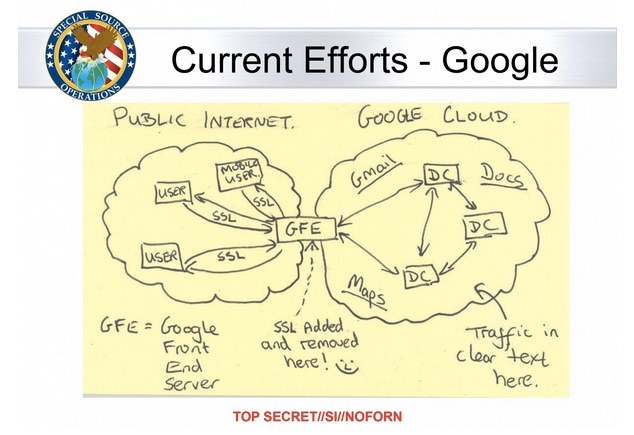 SPECIAL SOURCE
OPERATIONS
Current Efforts - Google
PUBLIC INTERNET.
GOOGLE CLOUD.
MOBILE
USER.
Gmail
DC
Docs
USER
SSL
SSL
GFE
DC
USER
SSL
DC
Maps
GFE = Google
Front
End
Server
SSL Added
and removed
here!
Traffic in
clear text
here.
TOP SECRET//SI//NOFORN